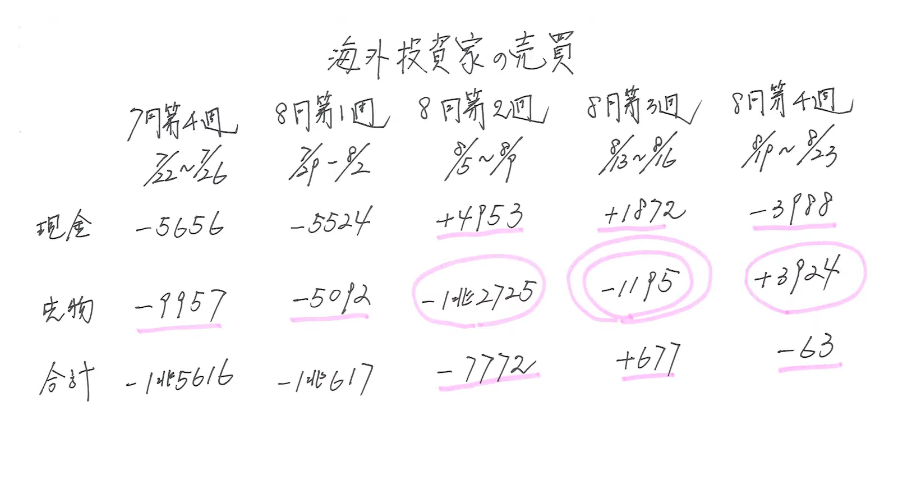 海外投資家の売買
7月第4週 8月第1週 8月第2週 8月第3週 8月第4週
7/22~7/26 7/29-8/2 8/5~8/9 8/13~8/16 8/19~8/23
現金 -5656 -5524 +4953 +1872 -3988
先物 -9957 -5092 -1兆2725 -1195 +3924
合計 -1兆5616 -1兆617 -7772 +677 -63